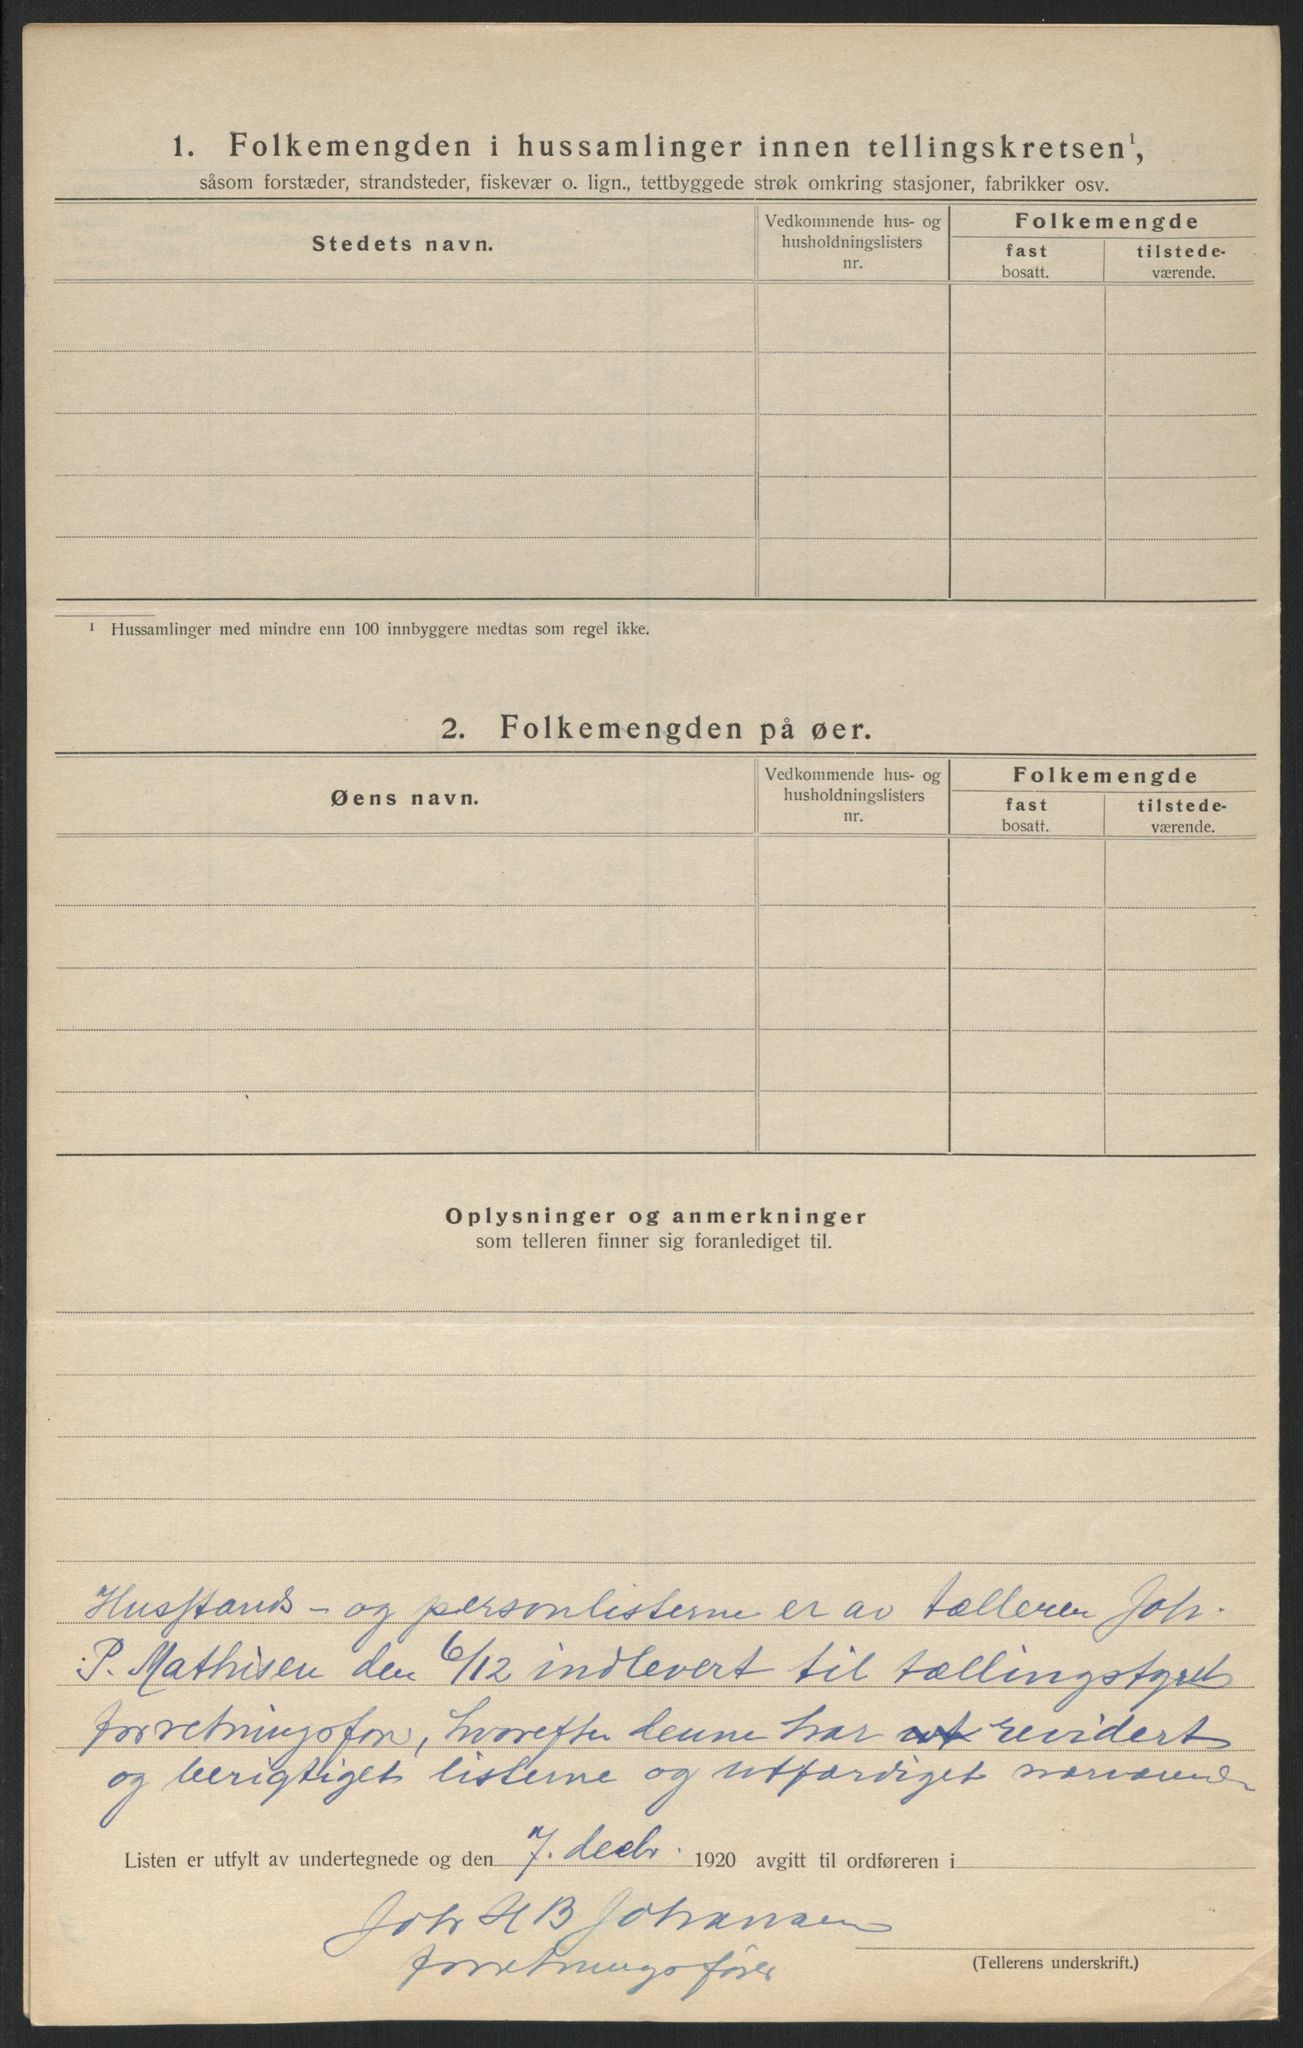 1. Folkemengden i hussamlinger innen tellingskretsen¹,
såsom forstæder, strandsteder, fiskevær o. lign., tettbyggede strøk omkring stasjoner, fabrikker osv.
Stedets navn.
Vedkommende hus- og
husholdningslisters
nr.
Folkemengde
fast
bosatt.
tilstede-
værende.
¹ Hussamlinger med mindre enn 100 innbyggere medtas som regel ikke.
2. Folkemengden på øer.
Øens navn.
Vedkommende hus- og
husholdningslisters
nr.
Folkemengde
fast
bosatt.
tilstede-
værende.
Oplysninger og anmerkninger
som telleren finner sig foranlediget til.
Husstands- og personlisterne er av tælleren Joh.
P. Mathisen den 6/12 indlevert til tællingstyrets
forretningsfør, hvorefter denne har revidert
og berigtiget listerne og utfærdiget nærværende
Listen er utfylt av undertegnede og den 7. decbr. 1920 avgitt til ordføreren i
Joh H B Johansen
forretningsfører
(Tellerens underskrift.)